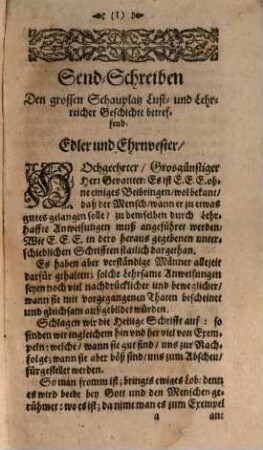 (1)
Send-Schreiben
Den grossen Schauplatz Lust- und Lehr-
reicher Geschichte betref-
fend.
Edler und Ehrnvester/
HOchgeehrter / Grosgünstiger
Herr Gevatter: Es ist E. E. E. oh-
ne einiges Beibringen / wol bekant /
daß der Mensch / wann er zu etwas
gutes gelangen solle / zu demselben durch Lehr-
haffte Anweisungen muß angeführet werden:
Wie E. E. E. in dero heraus gegebenen unter-
schiedlichen Schrifften statlich dargethan.
Es haben aber verständige Männer allezeit
darfür gehalten: solche Lehrsame Anweisungen
seyen noch viel nachdrücklicher und beweglicher /
wann sie mit vorgegangenen Thaten bescheinet
und gleichsam ausgebildet würden.
Schlagen wir die Heilige Schrifft auf: so
finden wir ingleichem hin und her viel von Exem-
peln: welche / wann sie gut sind / uns zur Nach-
folge; wann sie aber böß sind / uns zum Abscheu /
fürgestellet werden.
So man fromm ist; bringts ewiges Lob: denn
es wird beede bey Gott und den Menschen ge-
rühmet: wo es ist; da nimt man es zum Exempel
a an: